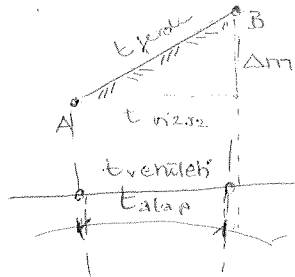 B
t ferde
Δm
A
t vízsz
t vetületi
t alap